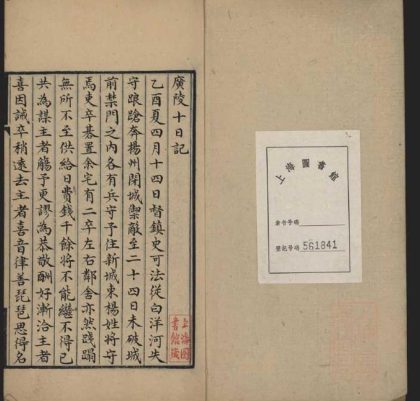 廣陵十日記
乙酉夏四月十四日督鎮史可法從白洋河失
守踉蹌奔揚州閉城禦敵至二十四日未破城
前禁門之內各有兵守予住新城東楊姓將守
焉吏卒碁置余宅有二卒左右鄰舍亦然踐蹋
無所不至供給日費錢千餘將不能繼不得已
共為謀主者觴予更謬為恭敬酬好漸洽主者
喜因誡卒稍遠去主者喜音律善琵琶思得名
上海圖
書館藏
上海圖書館
索書号碼
登記号碼 561841